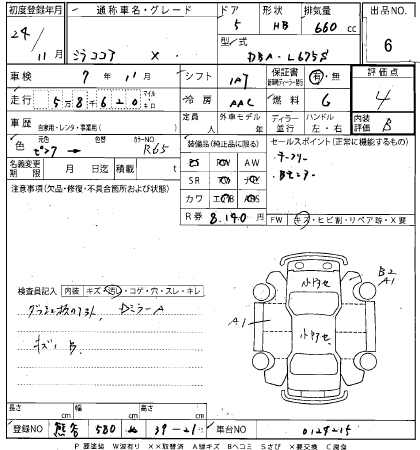 初度登録年月 通称車名・グレード ドア 形状 排気量 出品NO.
24/11月 ミラココア X 5 HB 660cc 6
型式 DBA-L675S
車検 7年11月 シフト IAT 保証書 有・無 評価点
走行 5万8千620 マイル キロ 冷房 AAC 燃料 G 4
車歴 自家用・レンタ・事業用( ) 定員 人 外車モデル 年 ディーラー 並行 ハンドル 左・右 内装評価 B
色 元色 ピンク → 色替 カラーNO R65 装備品(純正品に限る) セールスポイント(正常に機能するもの)
名義変更期限 月 日迄 積載 t
注意事項(欠品・修復・不具合箇所および状態)
AW
SR
カワ ABS
R券 8,140円 FW キズ・ヒビ割・リペア跡・X要
検査員記入 内装 キズ・汚レ・コゲ・穴・スレ・キレ
DミラーA
キズ B
小キズ
A1 B2 A1
長さ cm 幅 cm 高さ cm
登録NO 熊谷 580 39-21 車台NO 0124215
P 要塗装 W波有り XX取替済 A線キズ Bヘコミ Sさび X要交換 C腐食